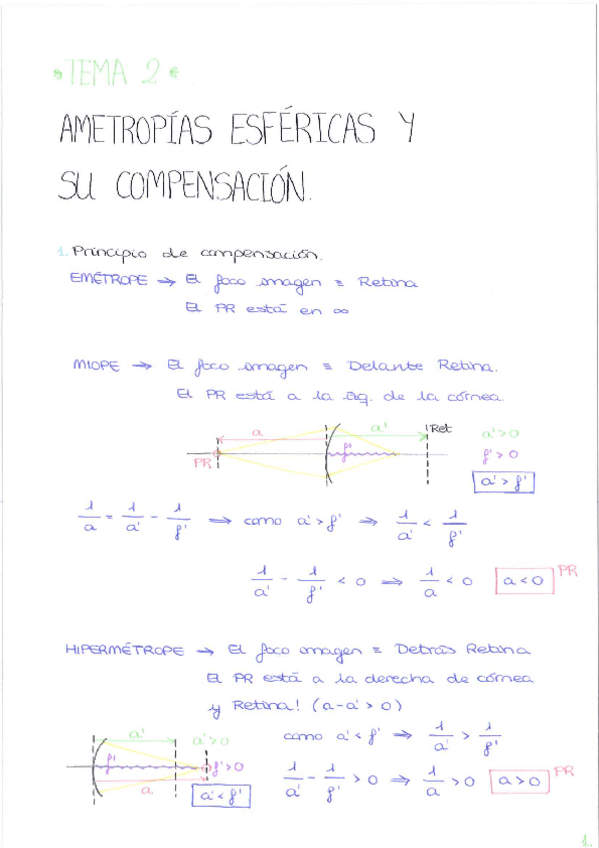 *TEMA 2*.
AMETROPÍAS ESFÉRICAS Y
SU COMPENSACIÓN.
1. Principio de compensación.
EMÉTROPE → El foco imagen ≡ Retina
El PR está en ∞
MIOPE → El foco imagen ≡ Delante Retina.
El PR está a la izq. de la córnea.
a a' Ret a'>0
PR f' f'>0
a'>f'
1/a = 1/a' - 1/f' ⇒ como a'>f' ⇒ 1/a' < 1/f'
1/a' - 1/f' < 0 ⇒ 1/a < 0 a<0 PR
HIPERMÉTROPE → El foco imagen ≡ Detrás Retina
El PR está a la derecha de córnea
y Retina! (a-a'>0)
a' a'>0 como a'<f' ⇒ 1/a' > 1/f'
f' f'>0 1/a' - 1/f' > 0 ⇒ 1/a > 0 a>0 PR
a a'<f'
1.